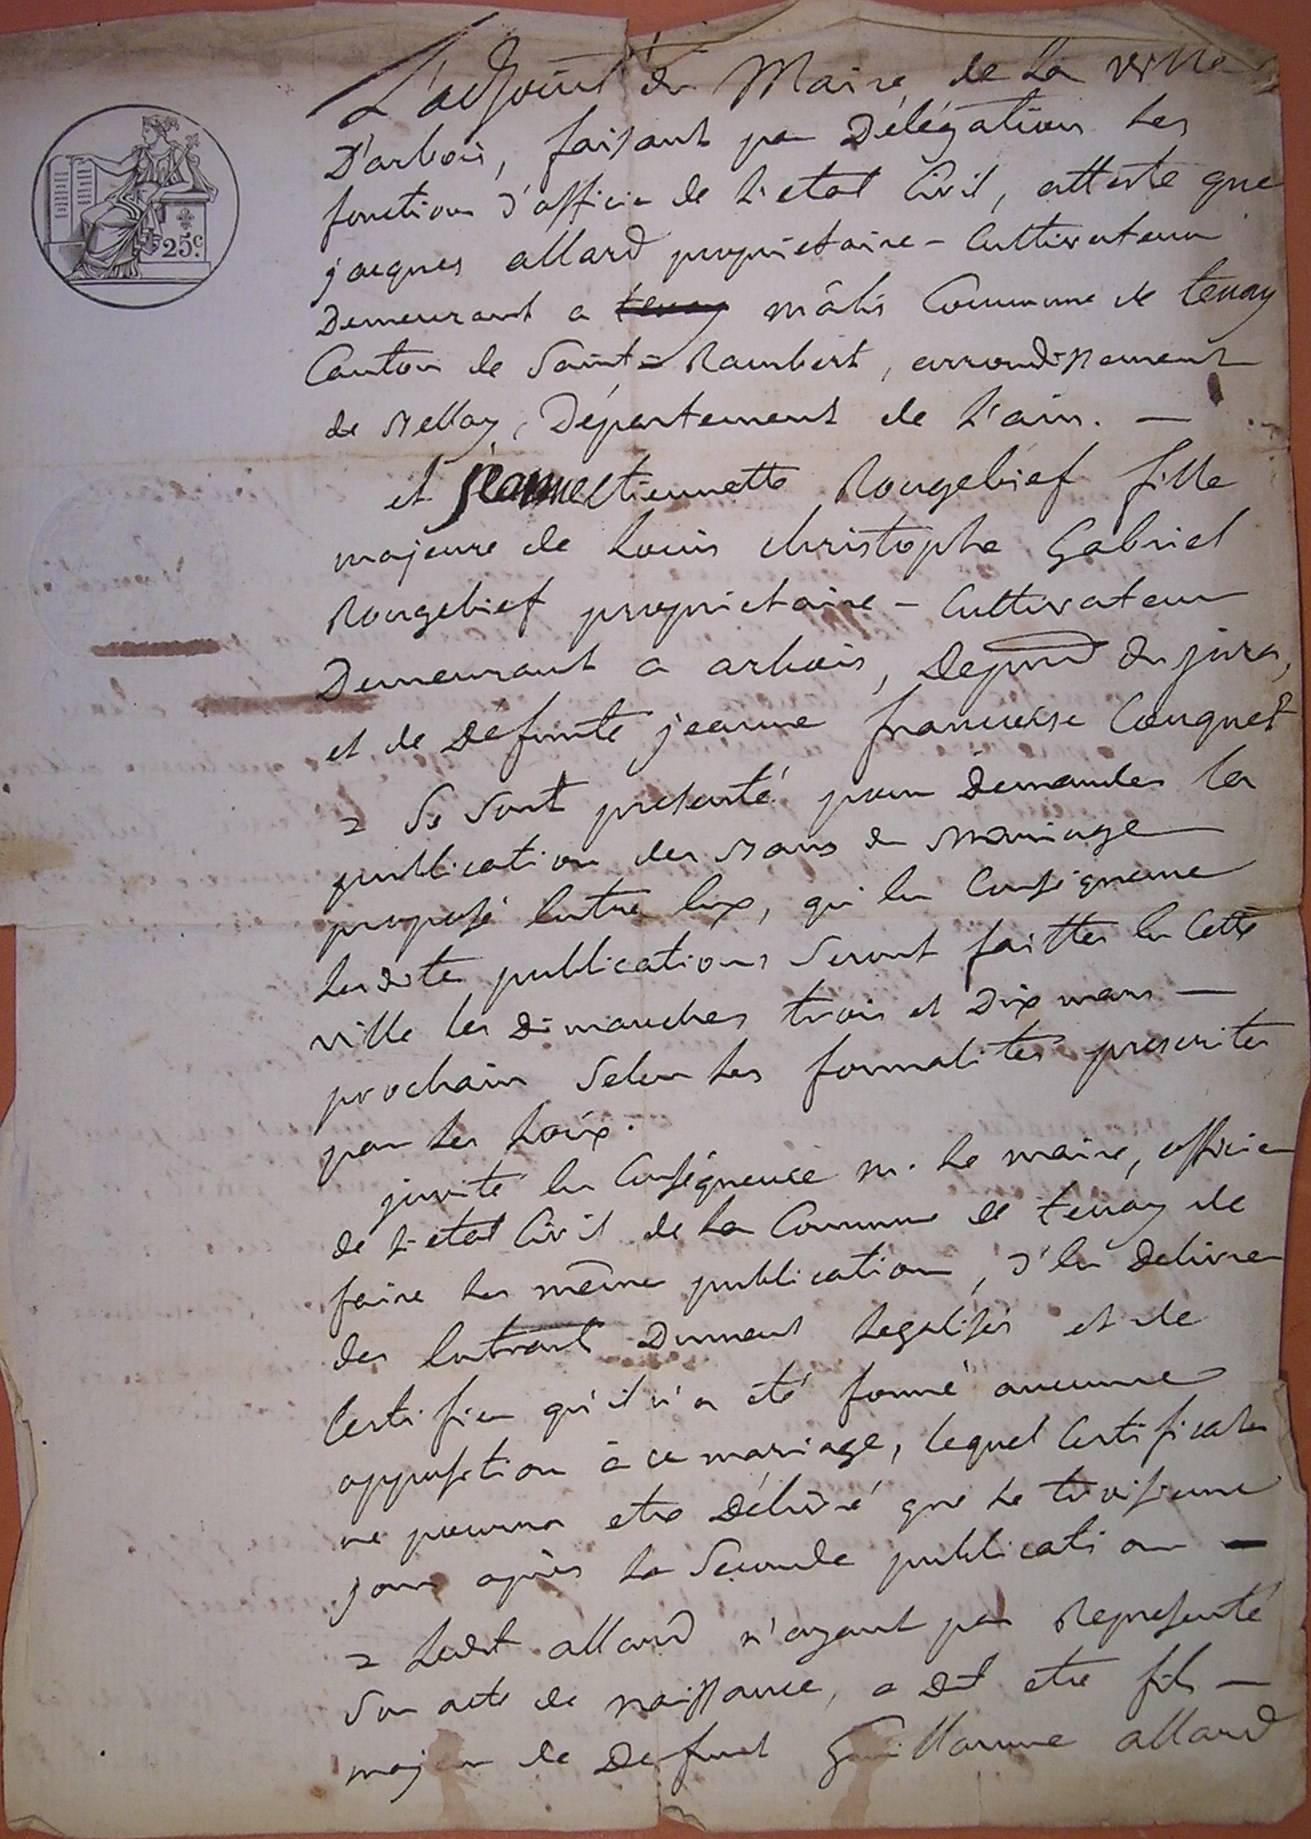 L'adjoint du Maire de La ville
D'arbois, faisant par Délégation les
fonction d'officier de L'etat Civil, atteste que
jacques allard proprietaire - Cultivateur
Demeurant a tenay mâlis Commune de tenay
Canton de Saint = Rambert, arrondissement
de Bellay, Département de L'ain. —
et jeanne Etiennette Rougebief fille
majeure de Louis christophe Gabriel
Rougebief proprietaire - Cultivateur
Demeurant a arbois, Depmt du jura,
et de Defunte jeanne francoise Couquet
= Se Sont presenté pour Demander la
publication des Bans du Mariage
proposé Entre Eux, qu'en Conséquence
Lesdite publications Seront faittes En Cette
ville les Dimanches trois et Dix mars —
prochain Selon les formalités prescrites
par les Loix.
invite En Conséquence M. Le maire, officier
de L'etat Civil de La Commune de tenay de
faire les même publication, d'En Delivrer
des Extrait Dument Legalisés et de
Certifier qu'il n'a été formé aucunne
opposition à ce mariage, lequel Certificat
ne pourra etre Délivré que Le troisieme
jour après La Seconde publication —
= Ledit allard n'ayant pas Representé
Son acte de naissance, a Dit etre fils —
majeur de Defunt Guillaume allard
25c.